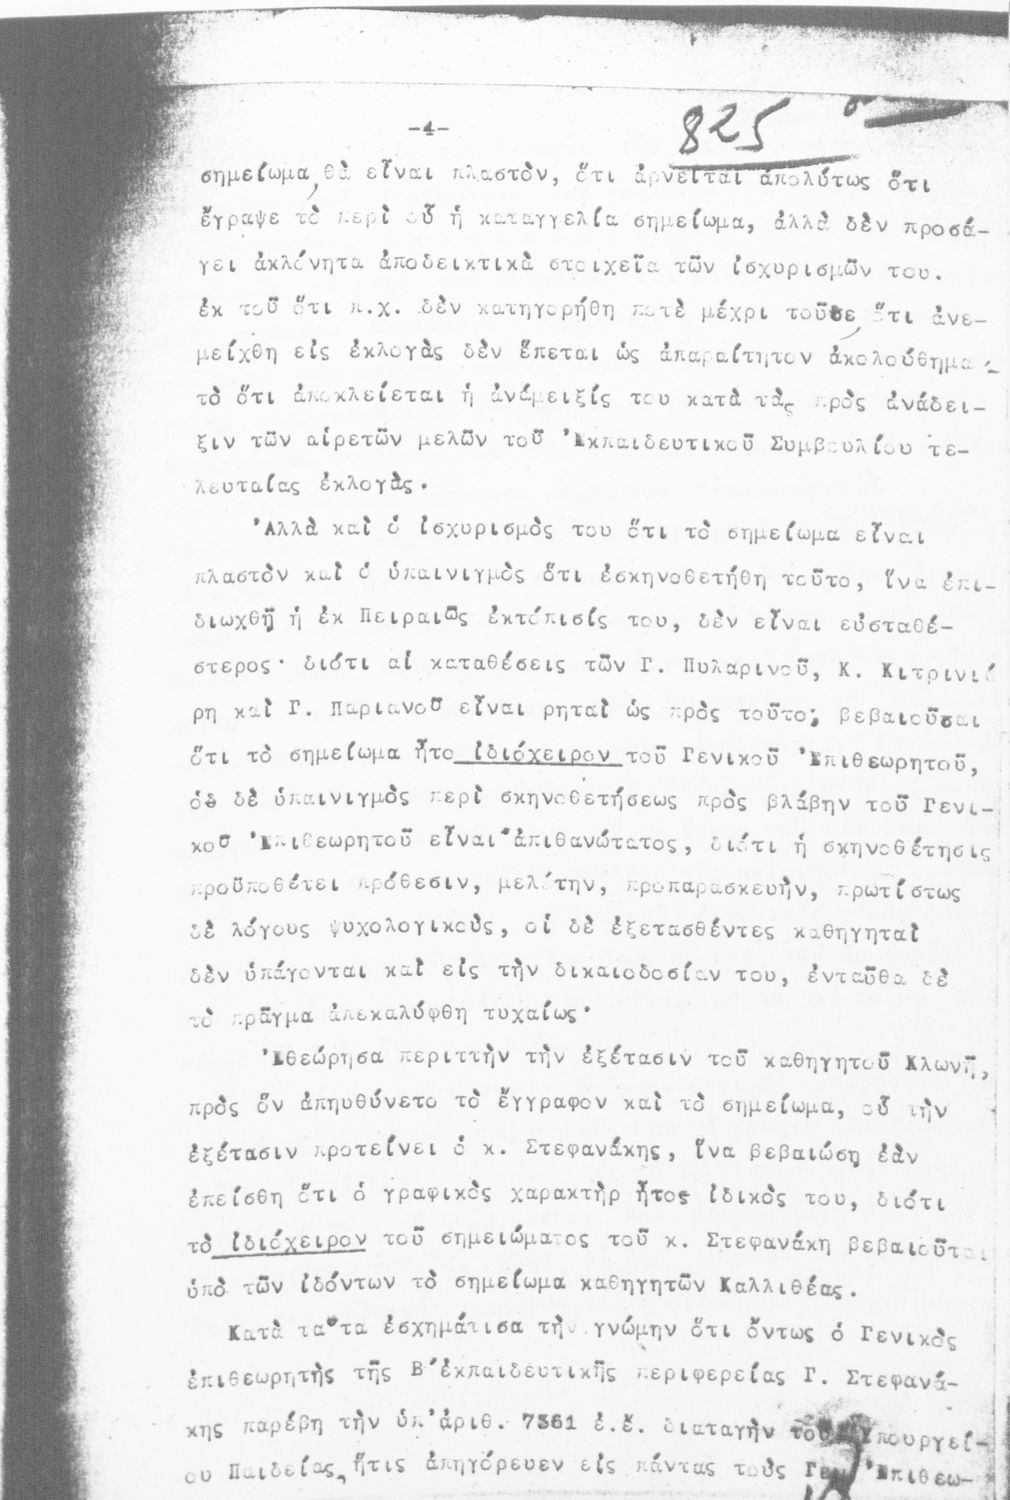 -4-
825
σημείωμα, θὰ εἶναι πλαστὸν, ὅτι ἀρνεῖται ἀπολύτως ὅτι
ἔγραψε τὸ περὶ οὗ ἡ καταγγελία σημείωμα, ἀλλὰ δὲν προσά-
γει ἀκλόνητα ἀποδεικτικὰ στοιχεῖα τῶν ἰσχυρισμῶν του.
ἐκ τοῦ ὅτι π.χ. δὲν κατηγορήθη ποτὲ μέχρι τοῦδε, ὅτι ἀνε-
μείχθη εἰς ἐκλογὰς δὲν ἕπεται ὡς ἀπαραίτητον ἀκολούθημα
τὸ ὅτι ἀποκλείεται ἡ ἀνάμειξίς του κατὰ τὰς πρὸς ἀνάδει-
ξιν τῶν αἱρετῶν μελῶν τοῦ Ἐκπαιδευτικοῦ Συμβουλίου τε-
λευταίας ἐκλογὰς.
Ἀλλὰ καὶ ὁ ἰσχυρισμὸς του ὅτι τὸ σημείωμα εἶναι
πλαστὸν καὶ ὁ ὑπαινιγμὸς ὅτι ἐσκηνοθετήθη τοῦτο, ἵνα ἐπι-
διωχθῇ ἡ ἐκ Πειραιῶς ἐκτόπισίς του, δὲν εἶναι εὐσταθέ-
στερος· διότι αἱ καταθέσεις τῶν Γ. Πυλαρινοῦ, Κ. Κιτρινιά
ρη καὶ Γ. Παριανοῦ εἶναι ρηταὶ ὡς πρὸς τοῦτο; βεβαιοῦσαι
ὅτι τὸ σημείωμα ἦτο ἰδιόχειρον τοῦ Γενικοῦ Ἐπιθεωρητοῦ,
ὁ δὲ ὑπαινιγμὸς περὶ σκηνοθετήσεως πρὸς βλάβην τοῦ Γενι-
κοῦ Ἐπιθεωρητοῦ εἶναι ἀπιθανώτατος, διότι ἡ σκηνοθέτησις
προϋποθέτει πρόθεσιν, μελέτην, προπαρασκευὴν, πρωτίστως
δὲ λόγους ψυχολογικοὺς, οἱ δὲ ἐξετασθέντες καθηγηταὶ
δὲν ὑπάγονται καὶ εἰς τὴν δικαιοδοσίαν του, ἐνταῦθα δὲ
τὸ πρᾶγμα ἀπεκαλύφθη τυχαίως·
Ἐθεώρησα περιττὴν τὴν ἐξέτασιν τοῦ καθηγητοῦ Κλωνῆ,
πρὸς ὃν ἀπηυθύνετο τὸ ἔγγραφον καὶ τὸ σημείωμα, οὗ τὴν
ἐξέτασιν προτείνει ὁ κ. Στεφανάκης, ἵνα βεβαιώσῃ ἐὰν
ἐπείσθη ὅτι ὁ γραφικὸς χαρακτὴρ ἦτο ἰδικὸς του, διότι
τὸ ἰδιόχειρον τοῦ σημειώματος τοῦ κ. Στεφανάκη βεβαιοῦται
ὑπὸ τῶν ἰδόντων τὸ σημείωμα καθηγητῶν Καλλιθέας.
Κατὰ ταῦτα ἐσχημάτισα τὴν γνώμην ὅτι ὄντως ὁ Γενικὸς
ἐπιθεωρητὴς τῆς Β΄ἐκπαιδευτικῆς περιφερείας Γ. Στεφανά-
κης παρέβη τὴν ὑπ'ἀριθ. 7361 ἐ.ἔ. διαταγὴν τοῦ Ὑπουργεί-
ου Παιδείας, ἥτις ἀπηγόρευεν εἰς πάντας τοὺς Γεν. Ἐπιθεω-